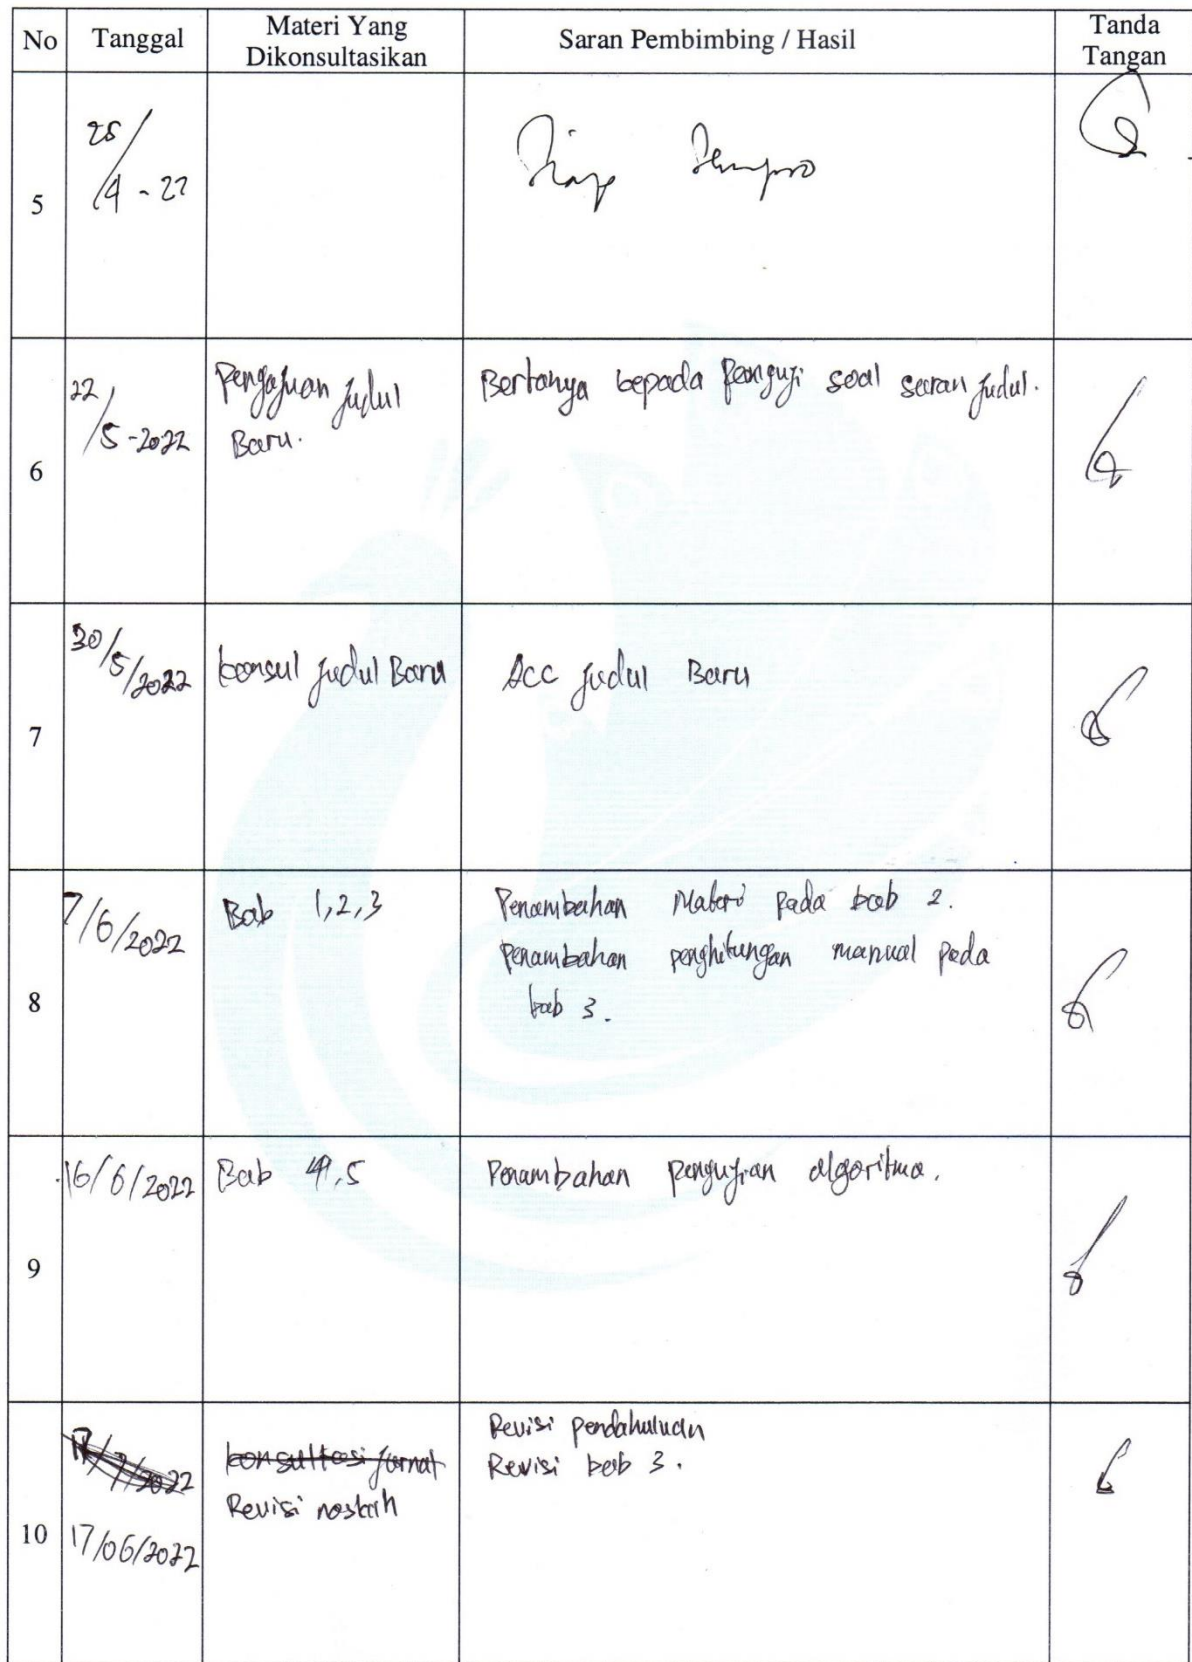 No Tanggal Materi Yang Dikonsultasikan Saran Pembimbing / Hasil Tanda Tangan
5
25/4-22
Siap Sempro
6
22/5-2022
Pengajuan judul
Baru.
Bertanya kepada Penguji soal saran judul.
7
30/5/2022
konsul judul Baru
Acc judul Baru
8
7/6/2022
Bab 1,2,3
Penambahan Materi pada bab 2.
penambahan penghitungan manual pada
bab 3.
9
16/6/2022
Bab 4,5
Penambahan pengujian algoritma.
10
konsultasi jurnal
Revisi naskah
17/06/2022
Revisi pendahuluan
Revisi bab 3.